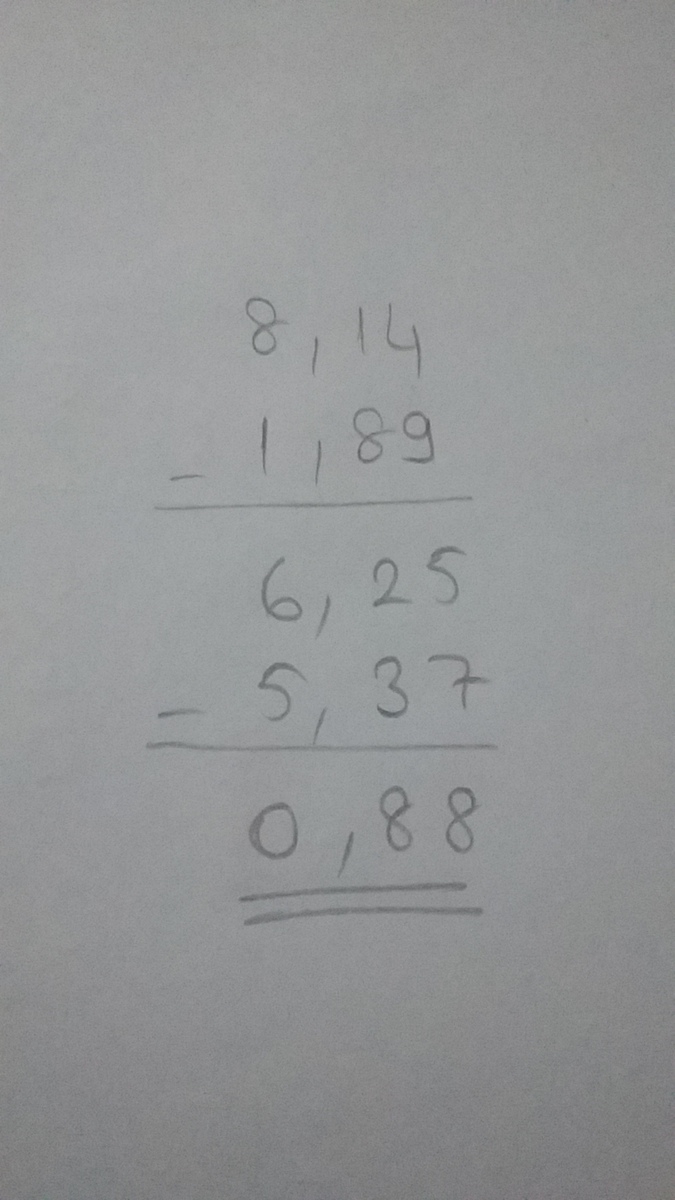 8,14
- 1,89
6,25
- 5,37
0,88